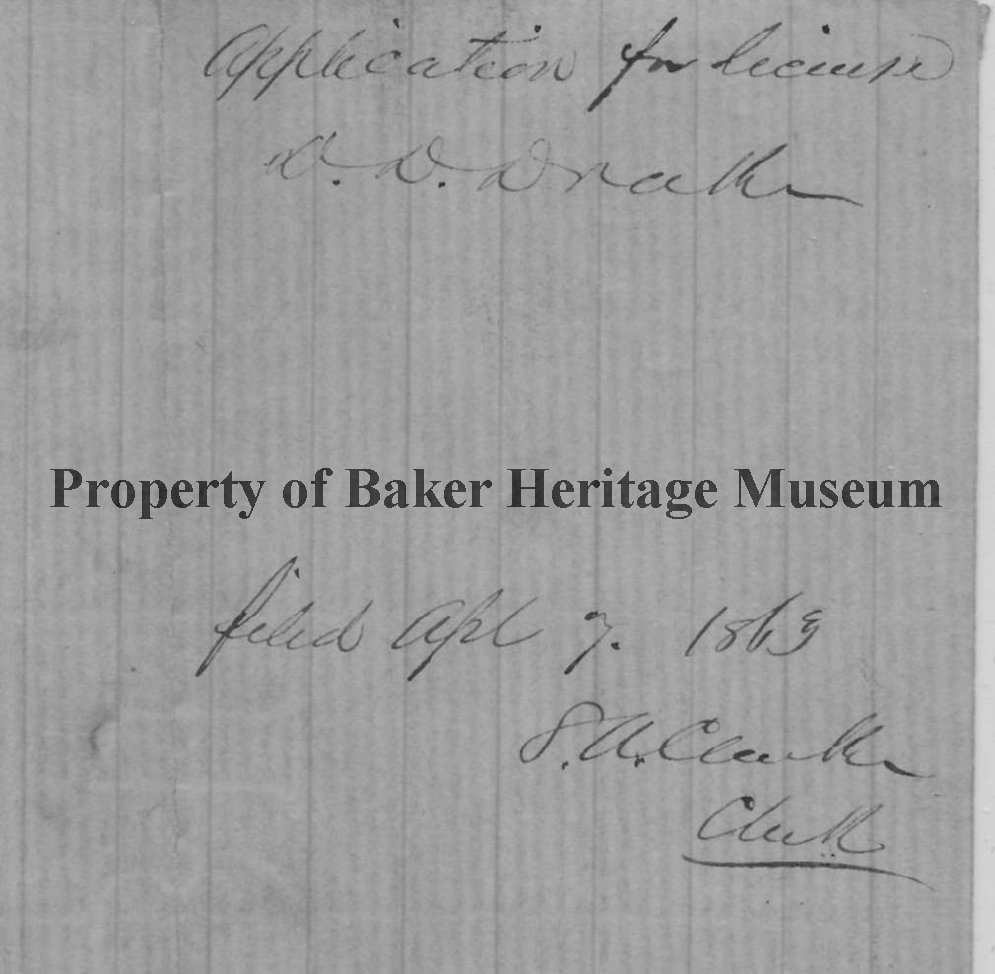 Application for license
D. D. Drake
Property of Baker Heritage Museum
filed Apl 7. 1863
S. A. Clarke
Clerk